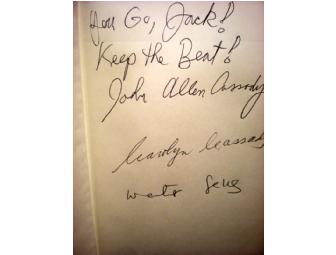 You Go, Jack!
Keep the Beat!
John Allen Cassady
Carolyn Cassady